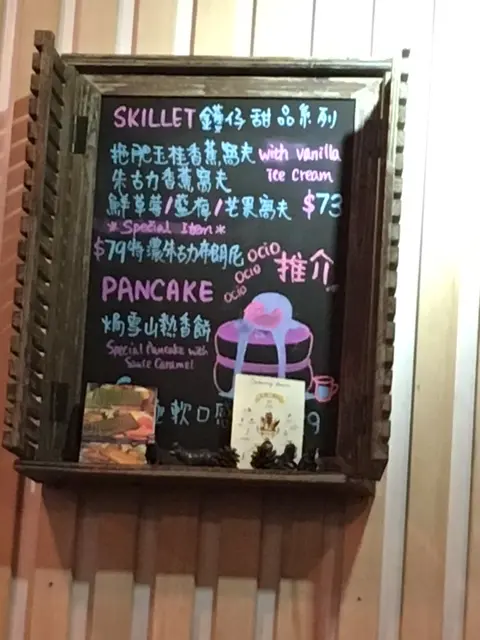 SKILLET 鑊仔甜品系列
拖肥玉桂香蕉窩夫 with vanilla
朱古力香蕉窩夫 Ice Cream
鮮草莓/藍梅/芒果窩夫 $73
*Special Item*
$79特濃朱古力布朗尼 ocio
ocio 推介
ocio
PANCAKE
焗雪山熱香餅
Special Pancake with
Sauce Caramel
軟口
9